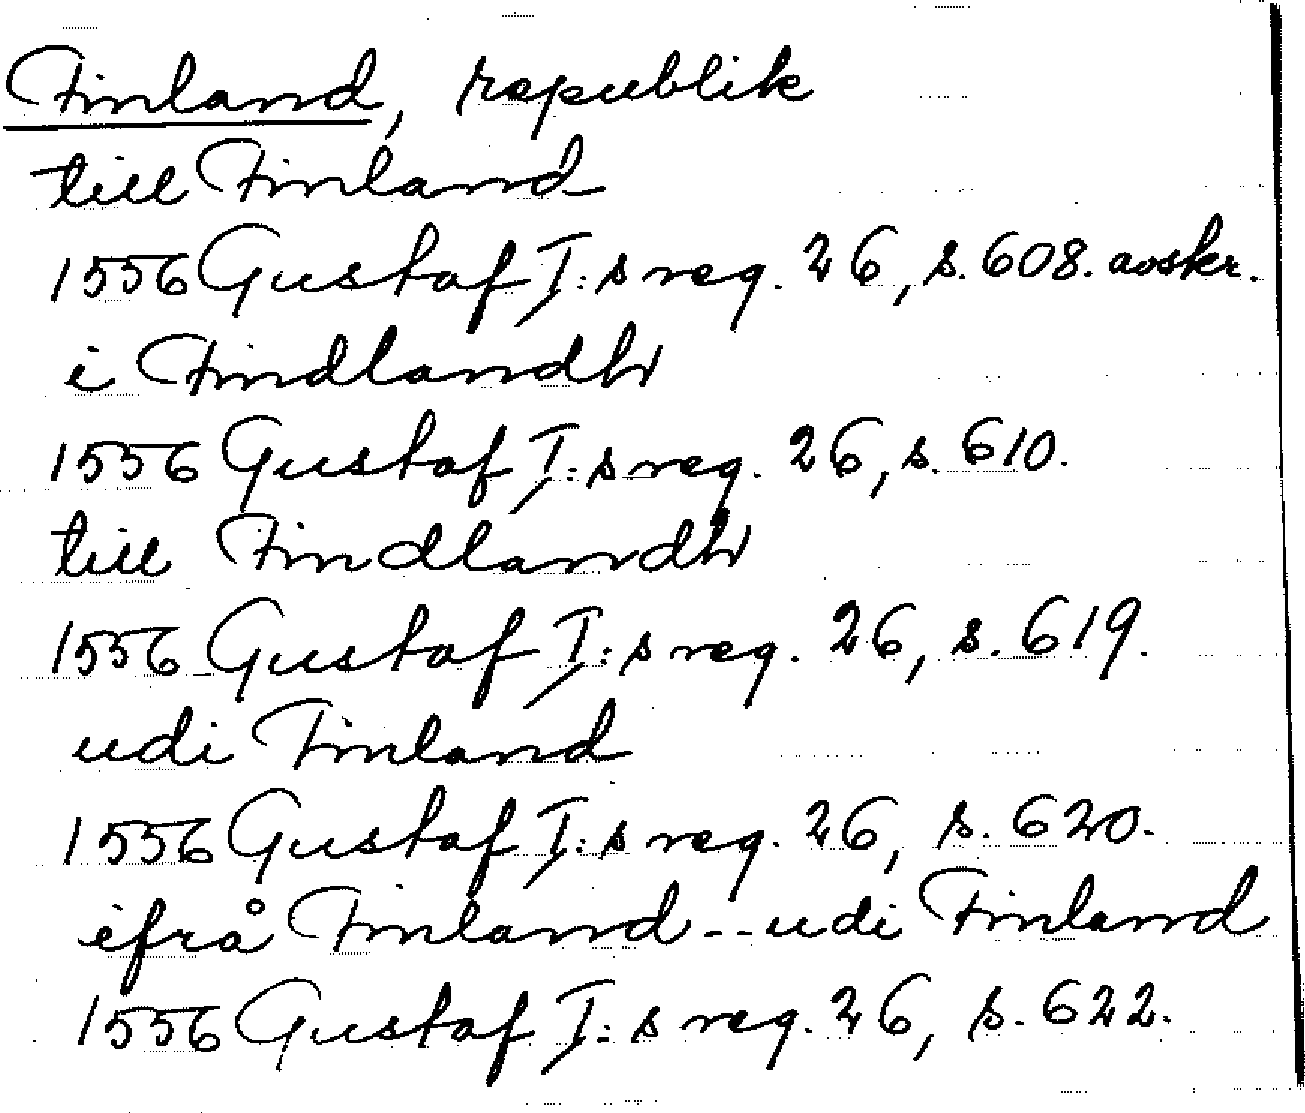 Finland, republik
till Finland
1556 Gustaf I:s reg. 26, s. 608. avskr.
i Findlandh
1556 Gustaf I:s reg. 26, s. 610.
till Findlandh
1556 Gustaf I:s reg. 26, s. 619.
udi Finland
1556 Gustaf I:s reg. 26, s. 620.
ifrå Finland -- udi Finland
1556 Gustaf I:s reg. 26, s. 622.